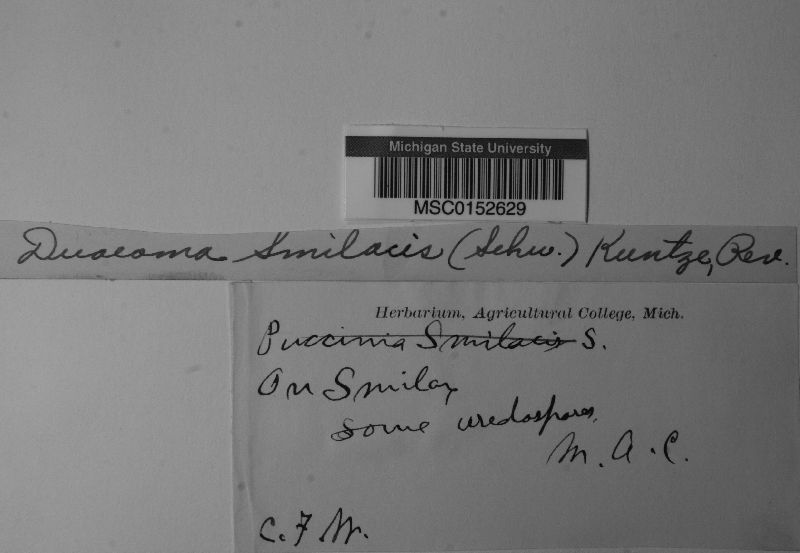 Michigan State University
MSC0152629
Dicaeoma Smilacis (Schw.) Kuntze, Rev.
Herbarium, Agricultural College, Mich.
Puccinia Smilacis S.
On Smilax
some uredospores.
M. A. C.
C. F. W.